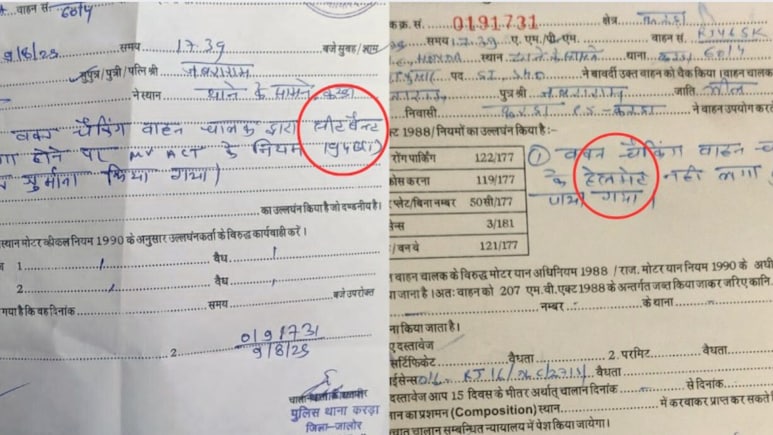 वाहन सं. 6014
9/8/25 समय 17.39 बजे सुबह/शाम
सुपुत्र/पुत्री/पत्नि श्री जबराराम
ने स्थान थाने के सामने करडा
वक्त चैकिंग वाहन चालक द्वारा सीटबैल्ट
होने पर MV ACT के नियम 194B(1)
जुर्माना किया गया।
का उल्लंघन किया है जो दण्डनीय है।
स्थान मोटर व्हीकल नियम 1990 के अनुसार उल्लंघनकर्ता के विरुद्ध कार्यवाही करें।
1 वैध
2 वैध
गया है कि वह दिनांक समय बजे उपरोक्त
2. 0191731
9/8/25
पुलिस थाना करड़ा
जिला-जालोर
क्र. सं. 0191731 क्षेत्र करडा
समय 17.39 ए. एम./पी.एम. वाहन सं. RJ46SK
HONDA स्थान थाने के सामने थाना करडा 6014
पद SI SHO ने बावर्दी उक्त वाहन को चैक किया (वाहन चालक
पुत्र श्री जबराराम जाति भील
निवासी करडा P.S. करडा ने वाहन उपयोग कर
1988/नियमों का उल्लंघन किया है:-
रोंग पार्किंग 122/177
क्रोस करना 119/177
प्लेट/बिना नम्बर 50सी/177
सेन्स 3/181
/वन वे 121/177
① वक्त चैकिंग वाहन
के हेलमेट नही लगा
पाया गया।
वाहन चालक के विरुद्ध मोटर यान अधिनियम 1988 / राज. मोटर यान नियम 1990 के अधी
या जाना है। अतः वाहन को 207 एम.वी.एक्ट 1988 के अन्तर्गत जब्त किया जाकर जरिए कानि.
नम्बर के थाना
ना किया जाता है।
ए दस्तावेज
सर्टिफिकेट वैधता 2. परमिट वैधता
ईसेन्स वैधता
दस्तावेज आप 15 दिवस के भीतर अर्थात् चालान दिनांक से दिनांक
ान का प्रशमन (Composition) स्थान में करवाकर प्राप्त कर सकते
चात चालान सम्बन्धित न्यायालय में पेश किया जायेगा।